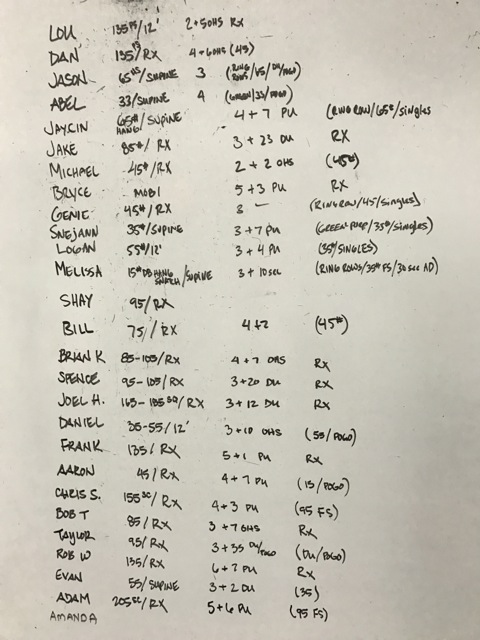 LOU 135 PS/12' 2+5OHS RX
DAN 135 PS/RX 4+6OHS (45)
JASON 65 HS/SUPINE 3 (RING ROWS/45/DU/POGO)
ABEL 33/SUPINE 4 (GREEN/33/POGO)
JAYCIN 65# HANG/SUPINE 4+7 PU (RING ROW/65#/SINGLES
JAKE 85#/RX 3+23 DU RX
MICHAEL 45#/RX 2+2 OHS (45#)
BRYCE MOBI 5+3 PU RX
GENIE 45#/RX 3 – (RING ROW/45/SINGLES)
SNEJANN 35#/SUPINE 3+7 PU (GREEN PURP/35#/SINGLES)
LOGAN 55#/12' 3+4 PU (35#/SINGLES)
MELISSA 15# DB HANG SNATCH/SUPINE 3+10 SEC (RING ROWS/35# FS/30 SEC AD)
SHAY 95/RX
BILL 75/RX 4+2 (45#)
BRIAN K 85-105/RX 4+7 OHS RX
SPENCE 95-105/RX 3+20 DU RX
JOEL H. 165-185 SQ/RX 3+12 DU RX
DANIEL 35-55/12' 3+10 OHS (55/POGO)
FRANK 135/RX 5+1 PU RX
AARON 45/RX 4+7 PU (15/POGO)
CHRIS S. 155 SC/RX 4+3 PU (95 FS)
BOB T 85/RX 3+7 OHS RX
TAYLOR 95/RX 3+35 DU/POGO (DU/POGO)
ROB W 135/RX 6+7 PU RX
EVAN 55/SUPINE 3+2 DU (35)
ADAM 205 SC/RX 5+6 PU (95 FS)
AMANDA